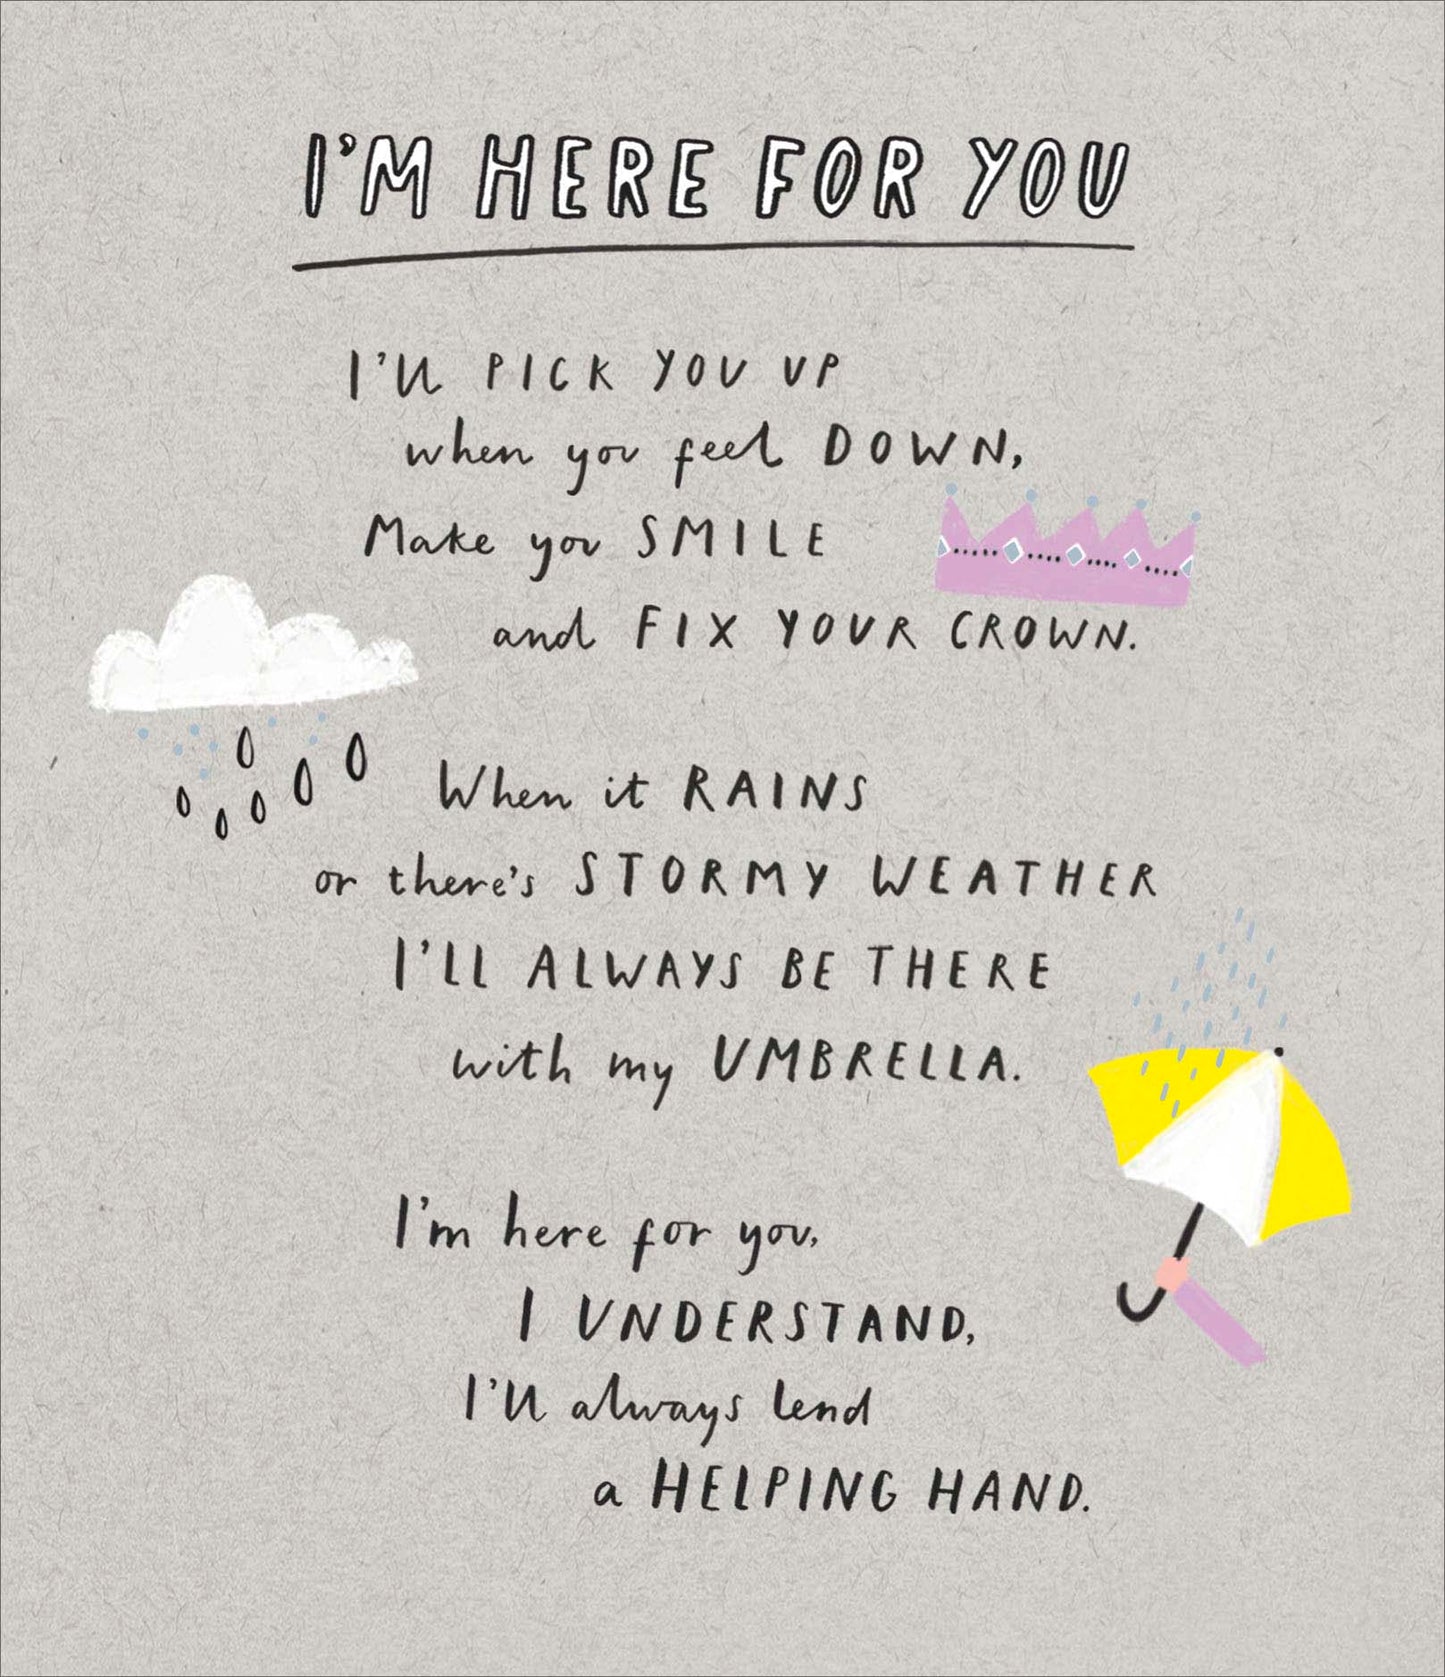 I'M HERE FOR YOU
I'll PICK YOU UP
when you feel DOWN,
Make you SMILE
and FIX YOUR CROWN.
When it RAINS
or there's STORMY WEATHER
I'LL ALWAYS BE THERE
with my UMBRELLA.
I'm here for you,
I UNDERSTAND,
I'll always lend
a HELPING HAND.